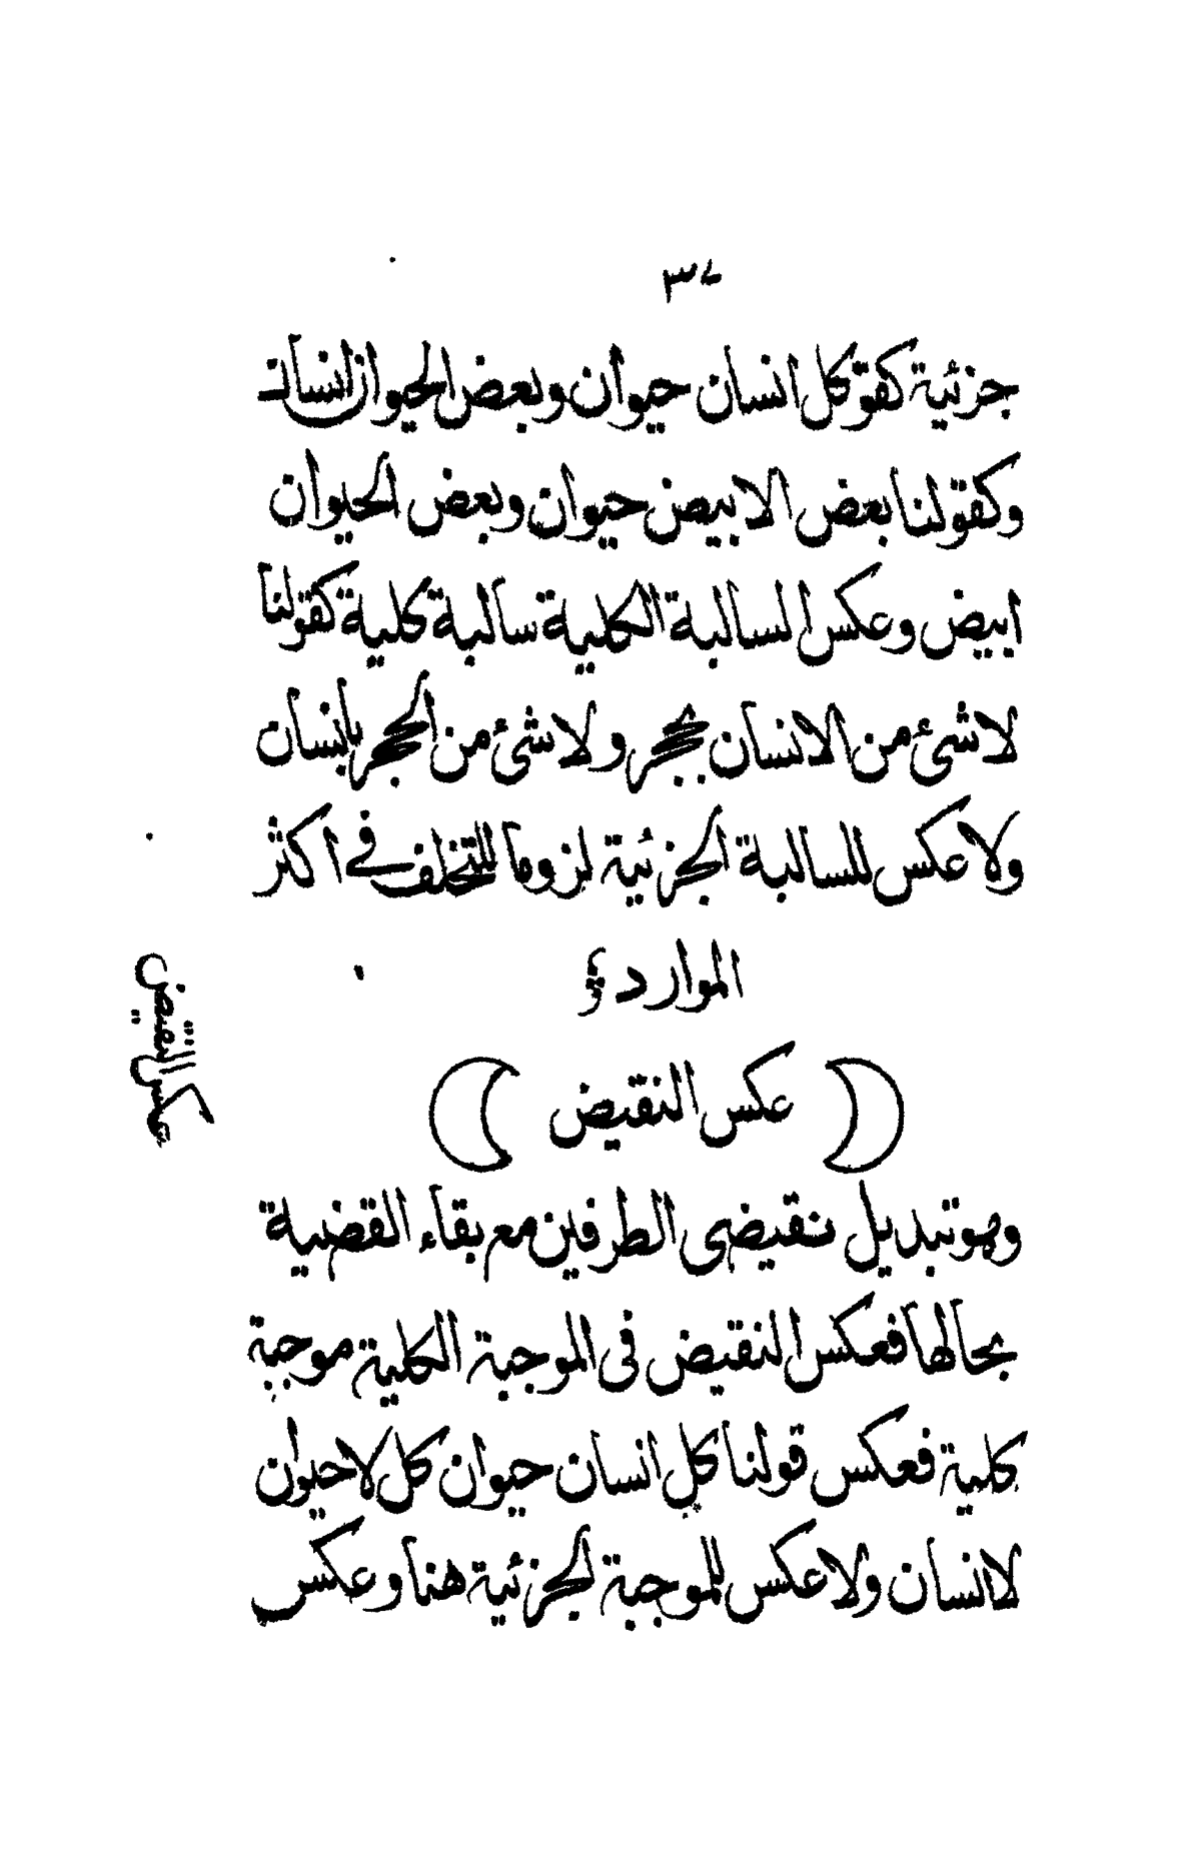 جزئية كقو كل انسان حيوان وبعض الحيوان انسان
وكقولنا بعض الابيض حيوان وبعض الحيوان
ابيض وعكس السالبة الكلية سالبة كلية كقولنا
لا شئ من الانسان بحجر ولا شئ من الحجر بانسان
ولا عكس للسالبة الجزئية لزوما للتخلف في اكثر
الموارد
عكس النقيض
عكس النقيض
وهو تبديل نقيضى الطرفين مع بقاء القضية
بحالها فعكس النقيض فى الموجبة الكلية موجبة
كلية فعكس قولنا كل انسان حيوان كل لا حيوان
لا انسان ولا عكس للموجبة الجزئية هنا وعكس